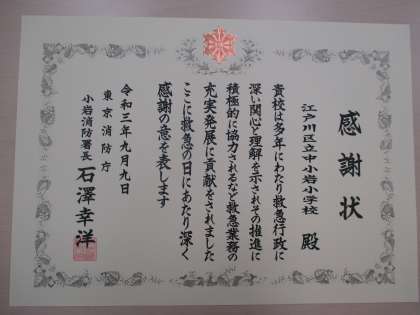 感謝状
江戸川区立中小岩小学校 殿
貴校は多年にわたり救急行政に
深い関心と理解を示されその推進に
積極的に協力されるなど救急業務の
充実発展に貢献をされました
ここに救急の日にあたり深く
感謝の意を表します
令和三年九月九日
東京消防庁
小岩消防署長 石澤幸洋